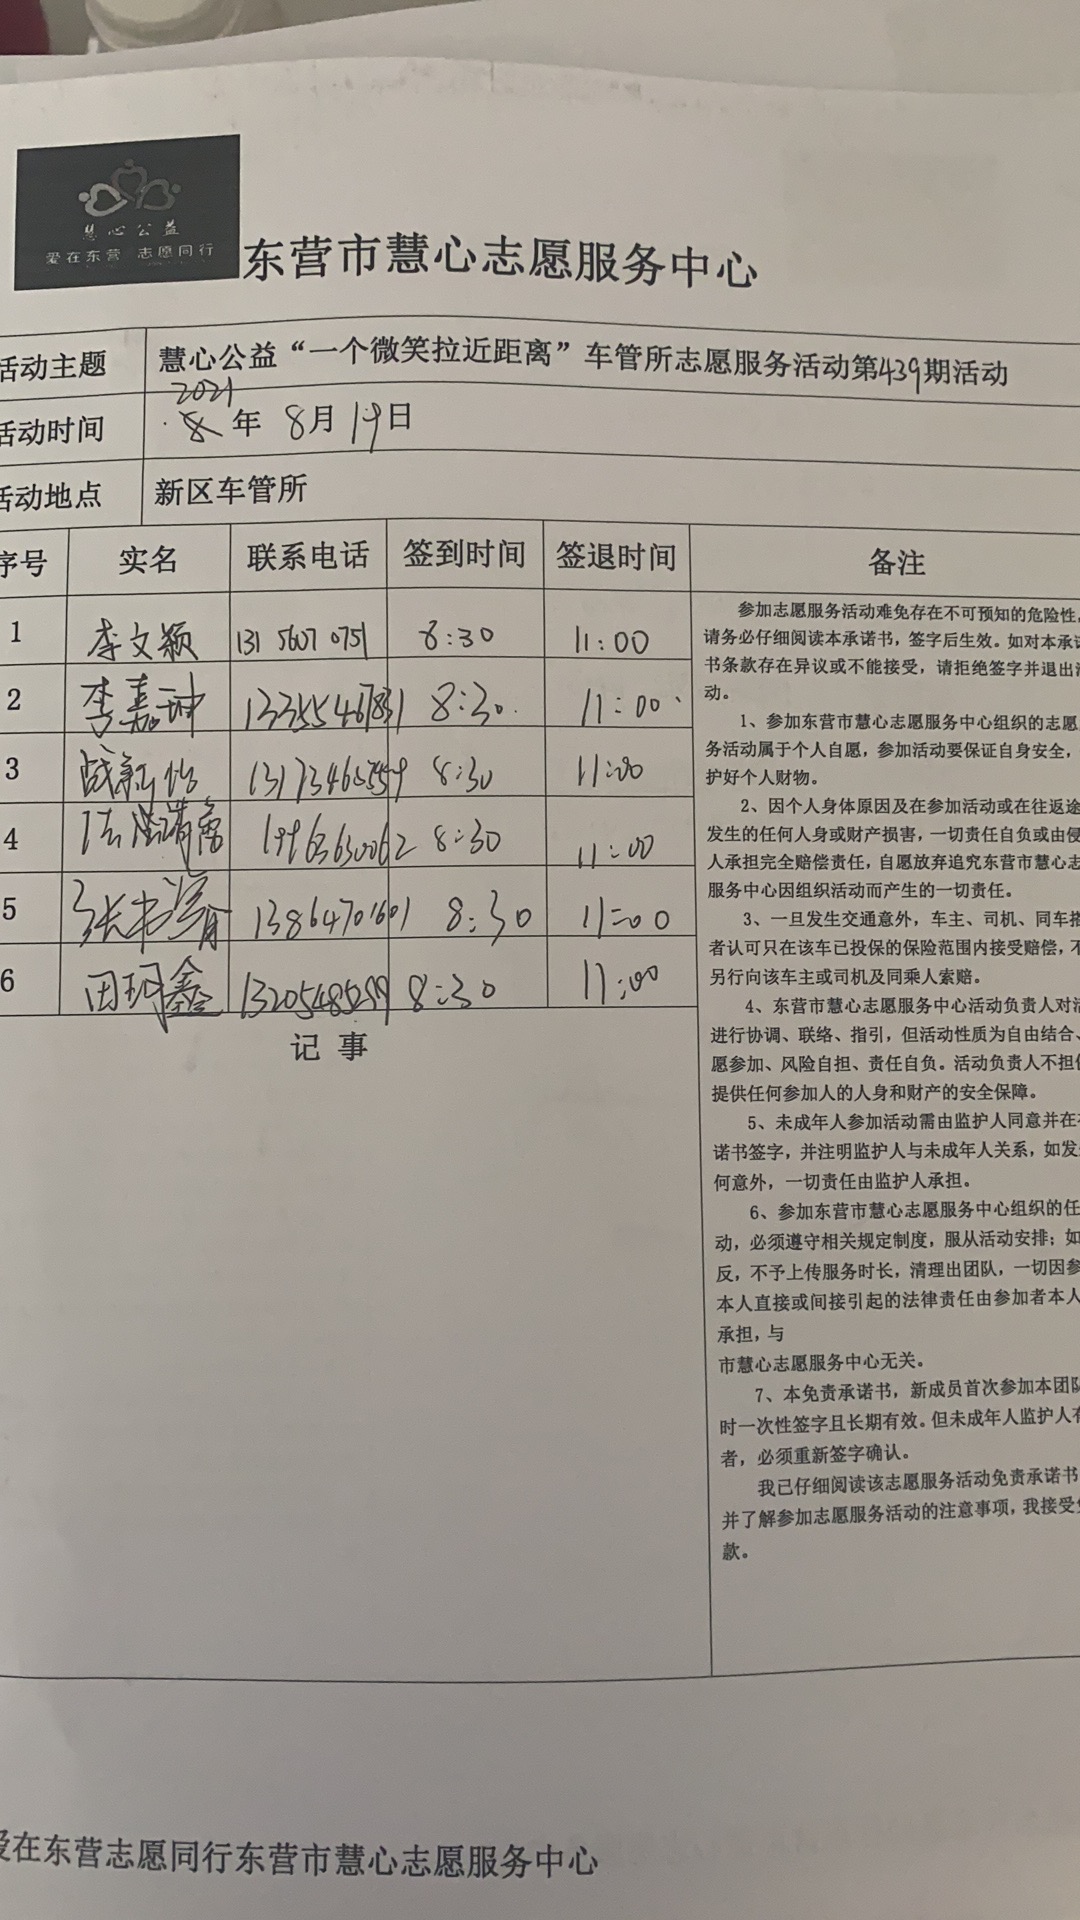 慧心公益
爱在东营 志愿同行
东营市慧心志愿服务中心
活动主题 慧心公益“一个微笑拉近距离”车管所志愿服务活动第439期活动
2021
活动时间 年 8月19日
活动地点 新区车管所
序号 实名 联系电话 签到时间 签退时间 备注
1 李文颖 131 5607 0751 8:30 11:00
2 李嘉珅 13355467831 8:30 11:00
3 战新怡 8:30 11:00
4 8:30 11:00
5 张书 13864701601 8:30 11:00
6 田珂鑫 8:30 11:00
记事
参加志愿服务活动难免存在不可预知的危险性,
请务必仔细阅读本承诺书，签字后生效。如对本承诺
书条款存在异议或不能接受，请拒绝签字并退出活
动。
1、参加东营市慧心志愿服务中心组织的志愿
务活动属于个人自愿，参加活动要保证自身安全，
护好个人财物。
2、因个人身体原因及在参加活动或在往返途
发生的任何人身或财产损害，一切责任自负或由侵
人承担完全赔偿责任，自愿放弃追究东营市慧心志
服务中心因组织活动而产生的一切责任。
3、一旦发生交通意外，车主、司机、同车搭
者认可只在该车已投保的保险范围内接受赔偿，不
另行向该车主或司机及同乘人索赔。
4、东营市慧心志愿服务中心活动负责人对活
进行协调、联络、指引，但活动性质为自由结合、
愿参加、风险自担、责任自负。活动负责人不担保
提供任何参加人的人身和财产的安全保障。
5、未成年人参加活动需由监护人同意并在
诺书签字，并注明监护人与未成年人关系，如发生
何意外，一切责任由监护人承担。
6、参加东营市慧心志愿服务中心组织的任
动，必须遵守相关规定制度，服从活动安排；如
反，不予上传服务时长，清理出团队，一切因参
本人直接或间接引起的法律责任由参加者本人
承担，与
市慧心志愿服务中心无关。
7、本免责承诺书，新成员首次参加本团队
时一次性签字且长期有效。但未成年人监护人有
者，必须重新签字确认。
我已仔细阅读该志愿服务活动免责承诺书
并了解参加志愿服务活动的注意事项，我接受免
款。
爱在东营志愿同行东营市慧心志愿服务中心